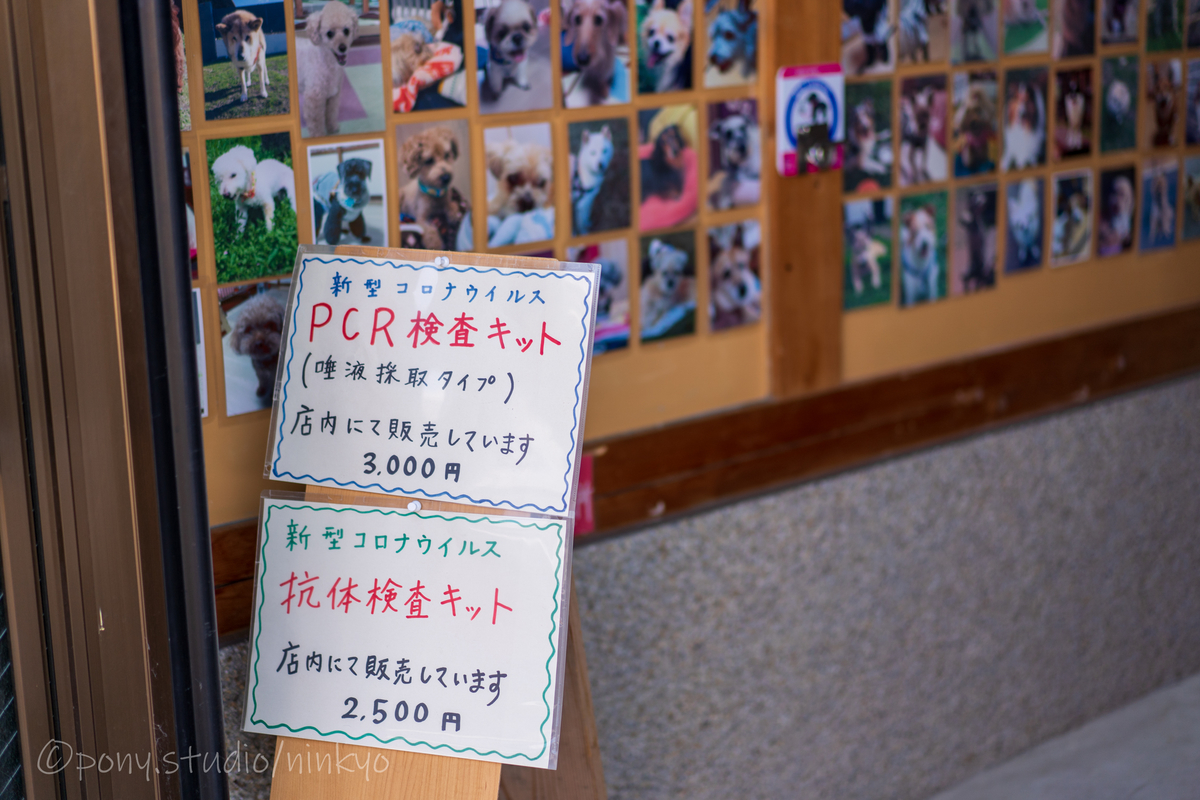 新型コロナウイルス
PCR検査キット
(唾液採取タイプ)
店内にて販売しています
3,000円
新型コロナウイルス
抗体検査キット
店内にて販売しています
2,500円
©pony.studio/ninkyo